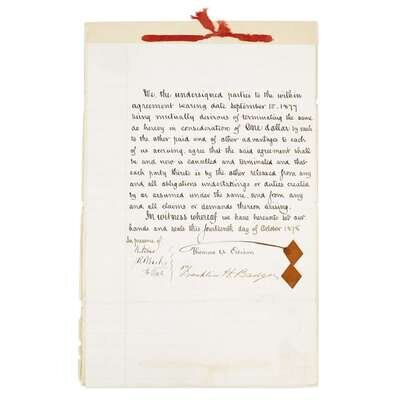 We, the undersigned parties to the within
agreement bearing date September 12th 1877
being mutually desirous of terminating the same
do hereby in consideration of One dollar by each
to the other paid and of other advantages to each
of us accruing, agree that the said agreement shall
be and now is cancelled and terminated and that
each party thereto is by the other released from any
and all obligations undertakings or duties created
by or assumed under the same, and from any
and all claims or demands therein arising.
In witness whereof we have hereunto set our
hands and seals this fourteenth day of October 1878
In presence of
Thomas A Edison
Franklin H. Badger